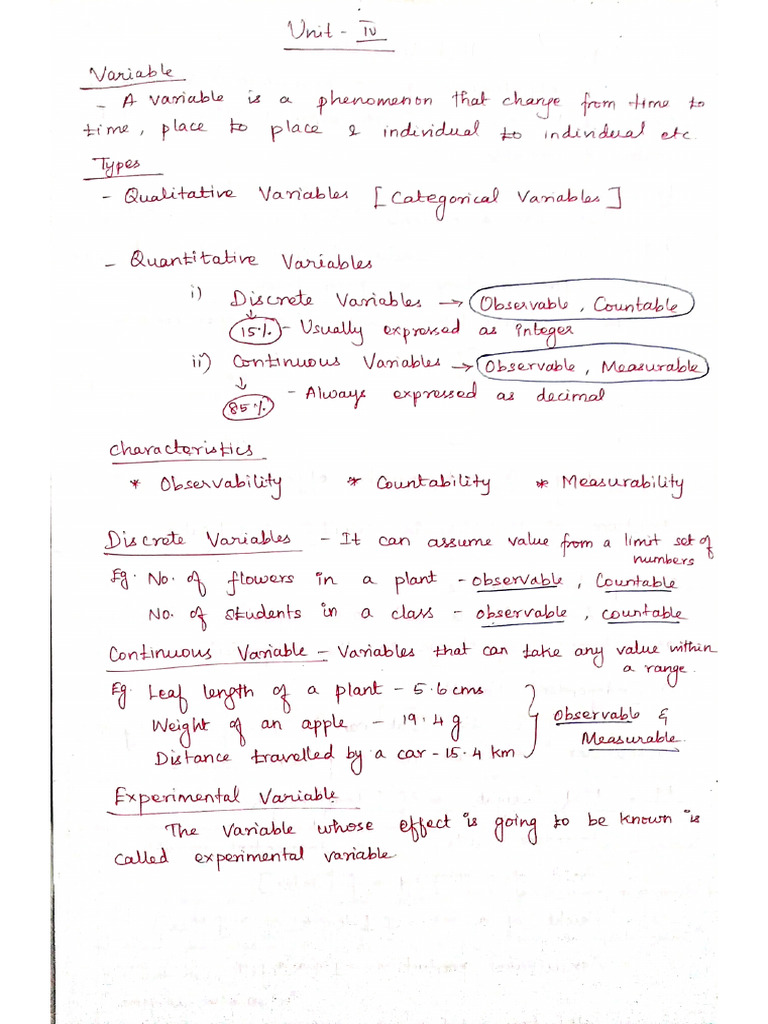 Unit - IV
Variable
- A variable is a phenomenon that change from time to
time, place to place & individual to individual etc.
Types
- Qualitative Variables [Categorical Variables]
- Quantitative Variables
i) Discrete Variables → Observable, Countable
15% - Usually expressed as integer
ii) Continuous Variables → Observable, Measurable
85% - Always expressed as decimal
Characteristics
* Observability * Countability * Measurability
Discrete Variables - It can assume value from a limit set of
numbers
Eg. No. of flowers in a plant - observable, Countable
No. of students in a class - observable, countable
Continuous Variable - Variables that can take any value within
a range.
Eg. Leaf length of a plant - 5.6 cms
Weight of an apple - 19.4 g
Observable &
Measurable.
Distance travelled by a car - 15.4 km
Experimental Variable
The Variable whose effect is going to be known is
called experimental variable.